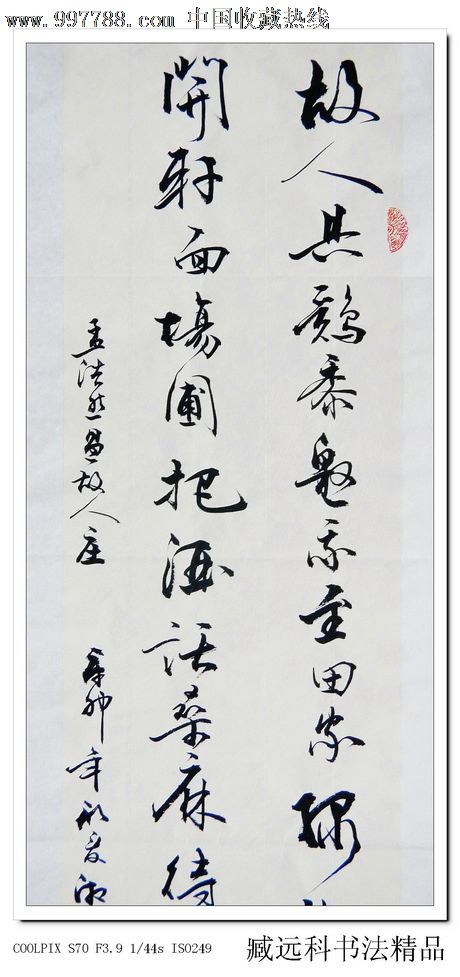 www.997788.com 中国收藏热线
故人具鷄黍邀我至田家绿
開軒面場圃把酒話桑麻待
孟浩然過故人庄 辛卯年初夏
COOLPIX S70 F3.9 1/44s ISO249
臧远科书法精品